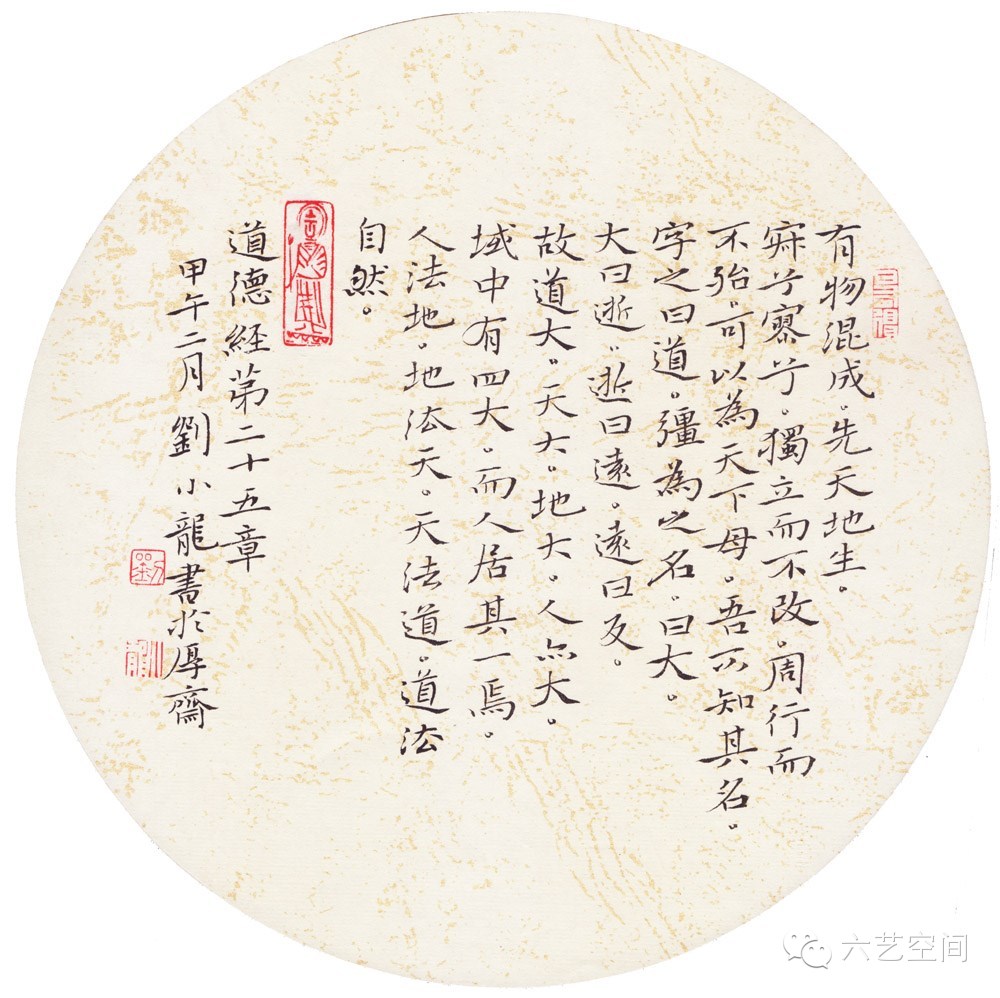 有物混成。先天地生。
寂兮寥兮。獨立而不改。周行而
不殆。可以為天下母。吾不知其名。
字之曰道。彊為之名。曰大。
大曰逝。逝曰遠。遠曰反。
故道大。天大。地大。人亦大。
域中有四大。而人居其一焉。
人法地。地法天。天法道。道法
自然。
道德經第二十五章
甲午二月劉小龍書於厚齋
劉
小龍
六艺空间